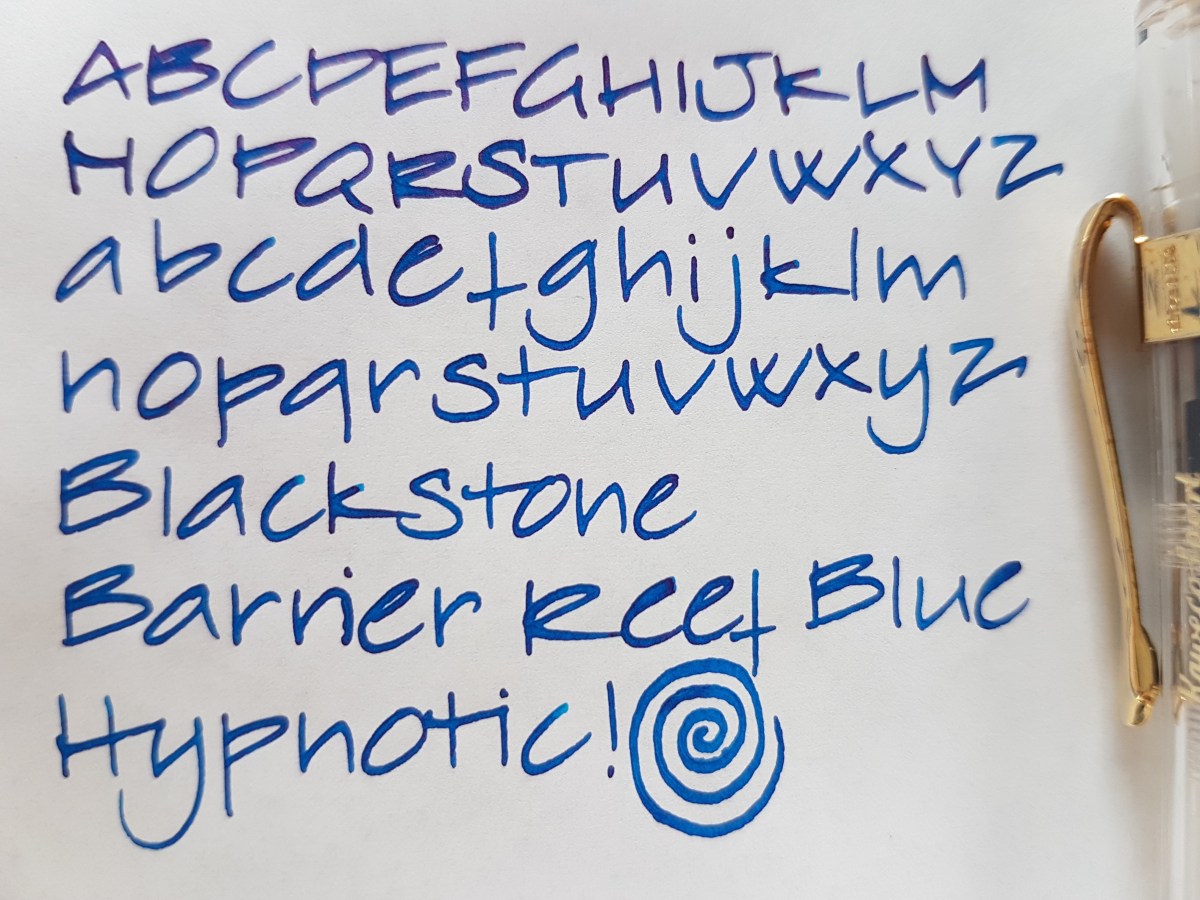 ABCDEFGHIJKLM
NOPQRSTUVWXYZ
abcdefghijklm
nopqrstuvwxyz
Blackstone
Barrier Reef Blue
Hypnotic!